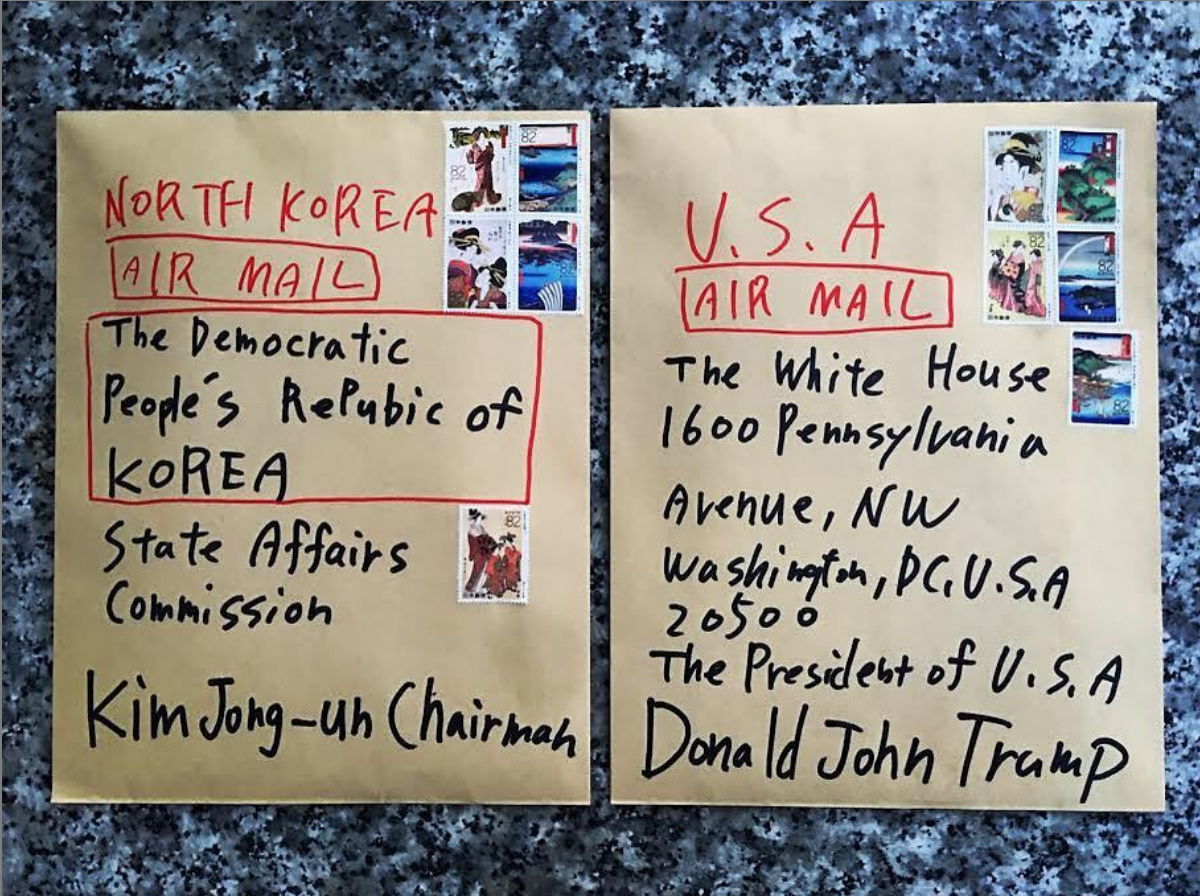 NORTH KOREA
AIR MAIL
The Democratic
People's RePubic of
KOREA
State Affairs
Commission
Kim Jong-un Chairman
82
82
82
82
82
U.S.A
AIR MAIL
The White House
1600 Pennsylvania
Avenue, NW
Washington, DC, U.S.A
20500
The President of U.S.A
Donald John Trump
82
82
82
82